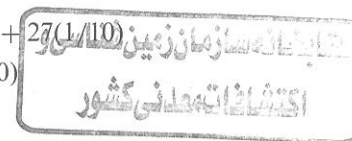 + 27(1/10)
0)
کتابخانه سازمان زمین شناسی و
اکتشافات معدنی کشور